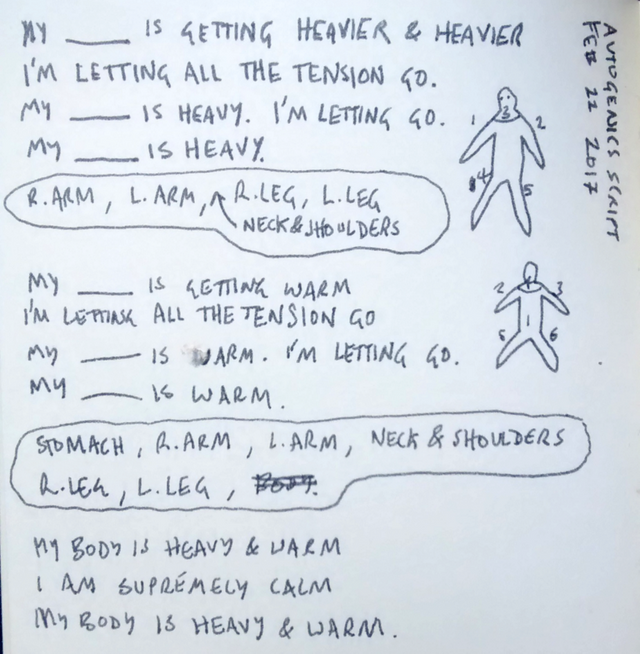 AUTOGENICS SCRIPT
FEB 22 2017
MY ____ IS GETTING HEAVIER & HEAVIER
I'M LETTING ALL THE TENSION GO.
MY ____ IS HEAVY. I'M LETTING GO.
MY ____ IS HEAVY.
1 3 2
4 5
R.ARM, L.ARM, R.LEG, L.LEG
NECK & SHOULDERS
MY ____ IS GETTING WARM
I'M LETTING ALL THE TENSION GO
MY ____ IS WARM. I'M LETTING GO.
MY ____ IS WARM.
2 4 3
1
5 6
STOMACH, R.ARM, L.ARM, NECK & SHOULDERS
R.LEG, L.LEG,
MY BODY IS HEAVY & WARM
I AM SUPREMELY CALM
MY BODY IS HEAVY & WARM.